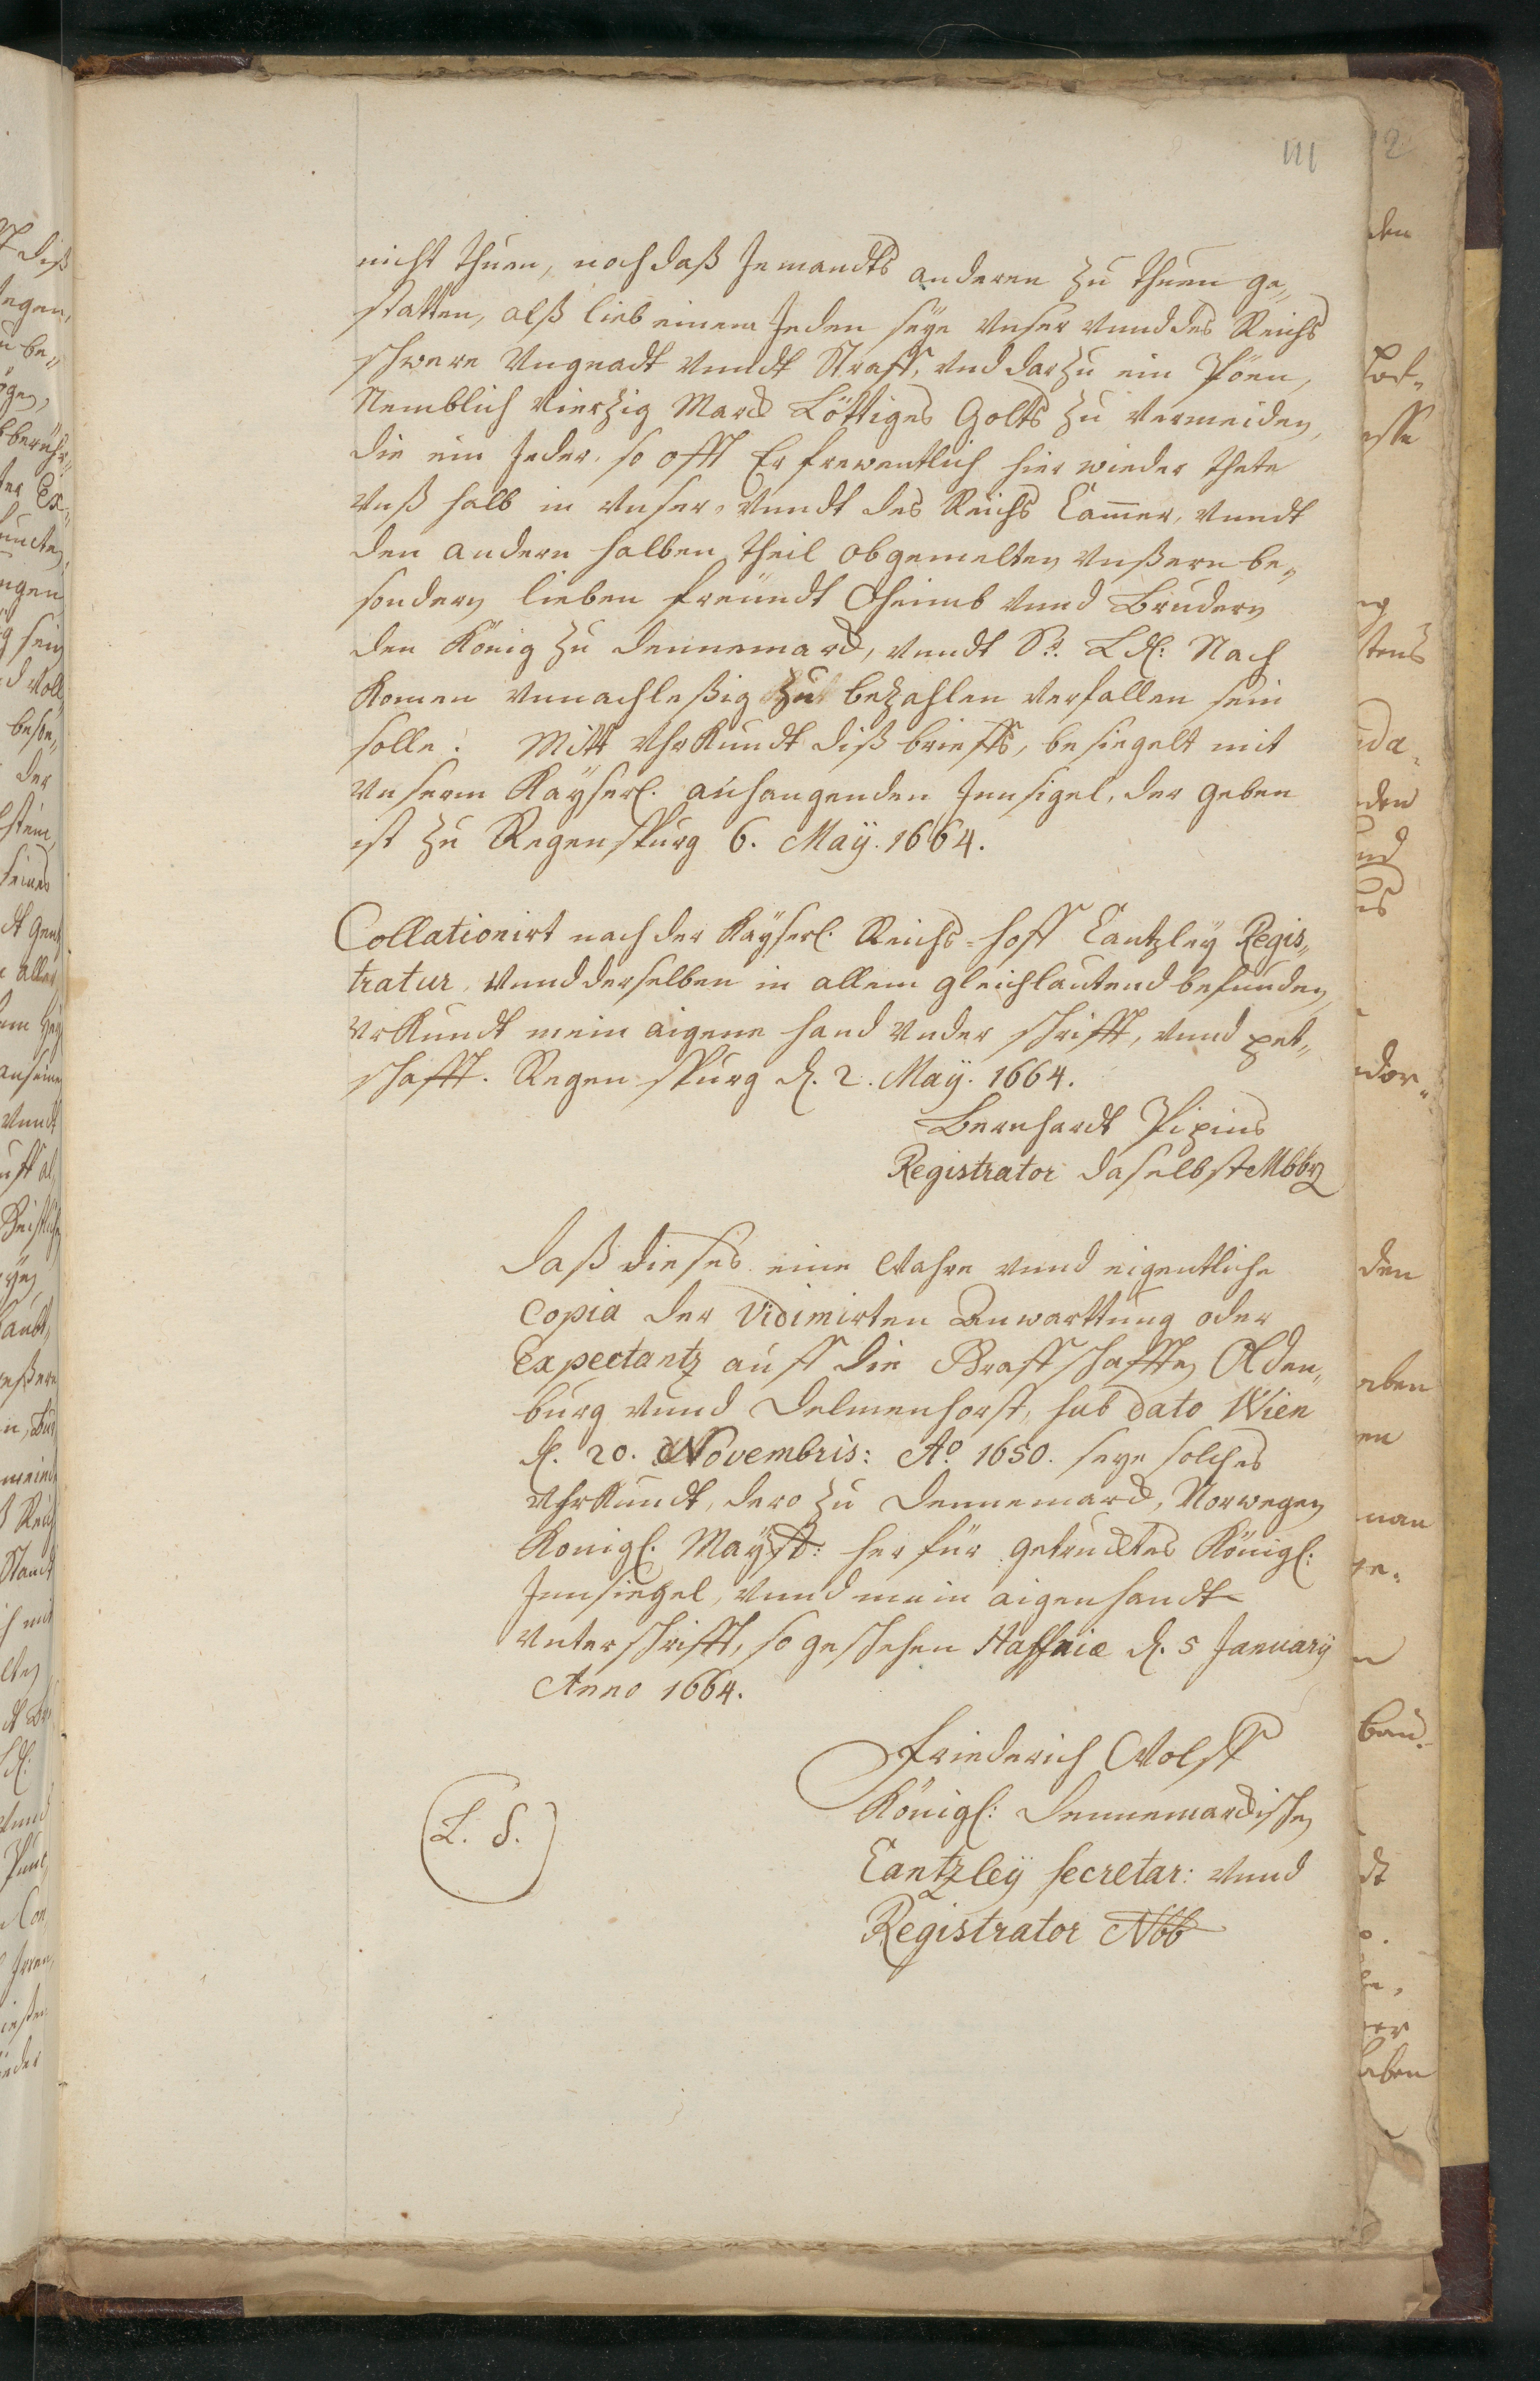 111
nicht thuen, noch daß Jemandts anderen zu thuen ge„
statten, alß lieb einem Jeden seÿe Unser vnnd des Reichs
schwere Ungnadt vnndt Straff, vnd darzu ein Pöen,
Nemblich Vierzig Marck Löttiges Golts zu vermeiden,
die ein Jeder, so offt Er freventlich hier wieder thete
Unß halb in Unser, vnndt des Reichs Cammer, vnndt
den andern halben theil obgemelten Unßern be„
sondern lieben freündt Oheimb vnnd Brudern
den König zu Dennemarck, vnndt Sr. Ld: Nach
Komen vnnachleßig zu bezahlen verfallen sein
solle. Mitt Uhrkundt diß brieffs, besiegelt mit
Unserm Kaÿserl. anhangenden Innsigel, der geben
ist zu Regenspurg 6. Maÿ. 1664.
Collationirt nach der Kaÿserl. Reichs-hoff Cantzleÿ Regis„
tratur, vnnd derselben in allem gleichlautend befunden,
Urkundt mein aigene hand vnder schrifft, vnnd pet„
schafft. Regenspurg d. 2. Maÿ. 1664.
Bernhardt Pipius
Registrator daselbst
daß dieses eine Wahre vnnd eigentliche
Copia der Vidimirten Anwarttung oder
Expectantz auff die Graffschafften Olden„
burg vnnd Delmenhorst, sub dato Wien
d. 20. Novembris: Ao 1650. seye solches
Uhrkundt, dero zu Dennemarck, Norwegen
Konigl. Maÿst: herfür getrucktes Königl:
Innsiegel, vnnd mein aigenhandt
Unterschrifft, so geschehen Haffniæ d. 5 Januarÿ
Anno 1664.
Friederich Wolff
Königl: Dennemarckischen
Cantzleÿ Secretar: vnnd
Registrator
(L. S.)